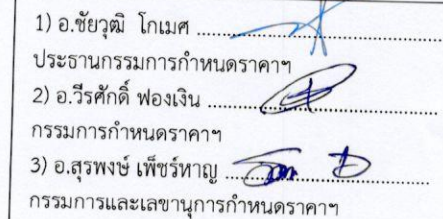 1) อ.ชัยวุฒิ โกเมศ ........................................
ประธานกรรมการกำหนดราคาฯ
2) อ.วีรศักดิ์ ฟองเงิน ........................................
กรรมการกำหนดราคาฯ
3) อ.สุรพงษ์ เพ็ชร์หาญ ........................................
กรรมการและเลขานุการกำหนดราคาฯ